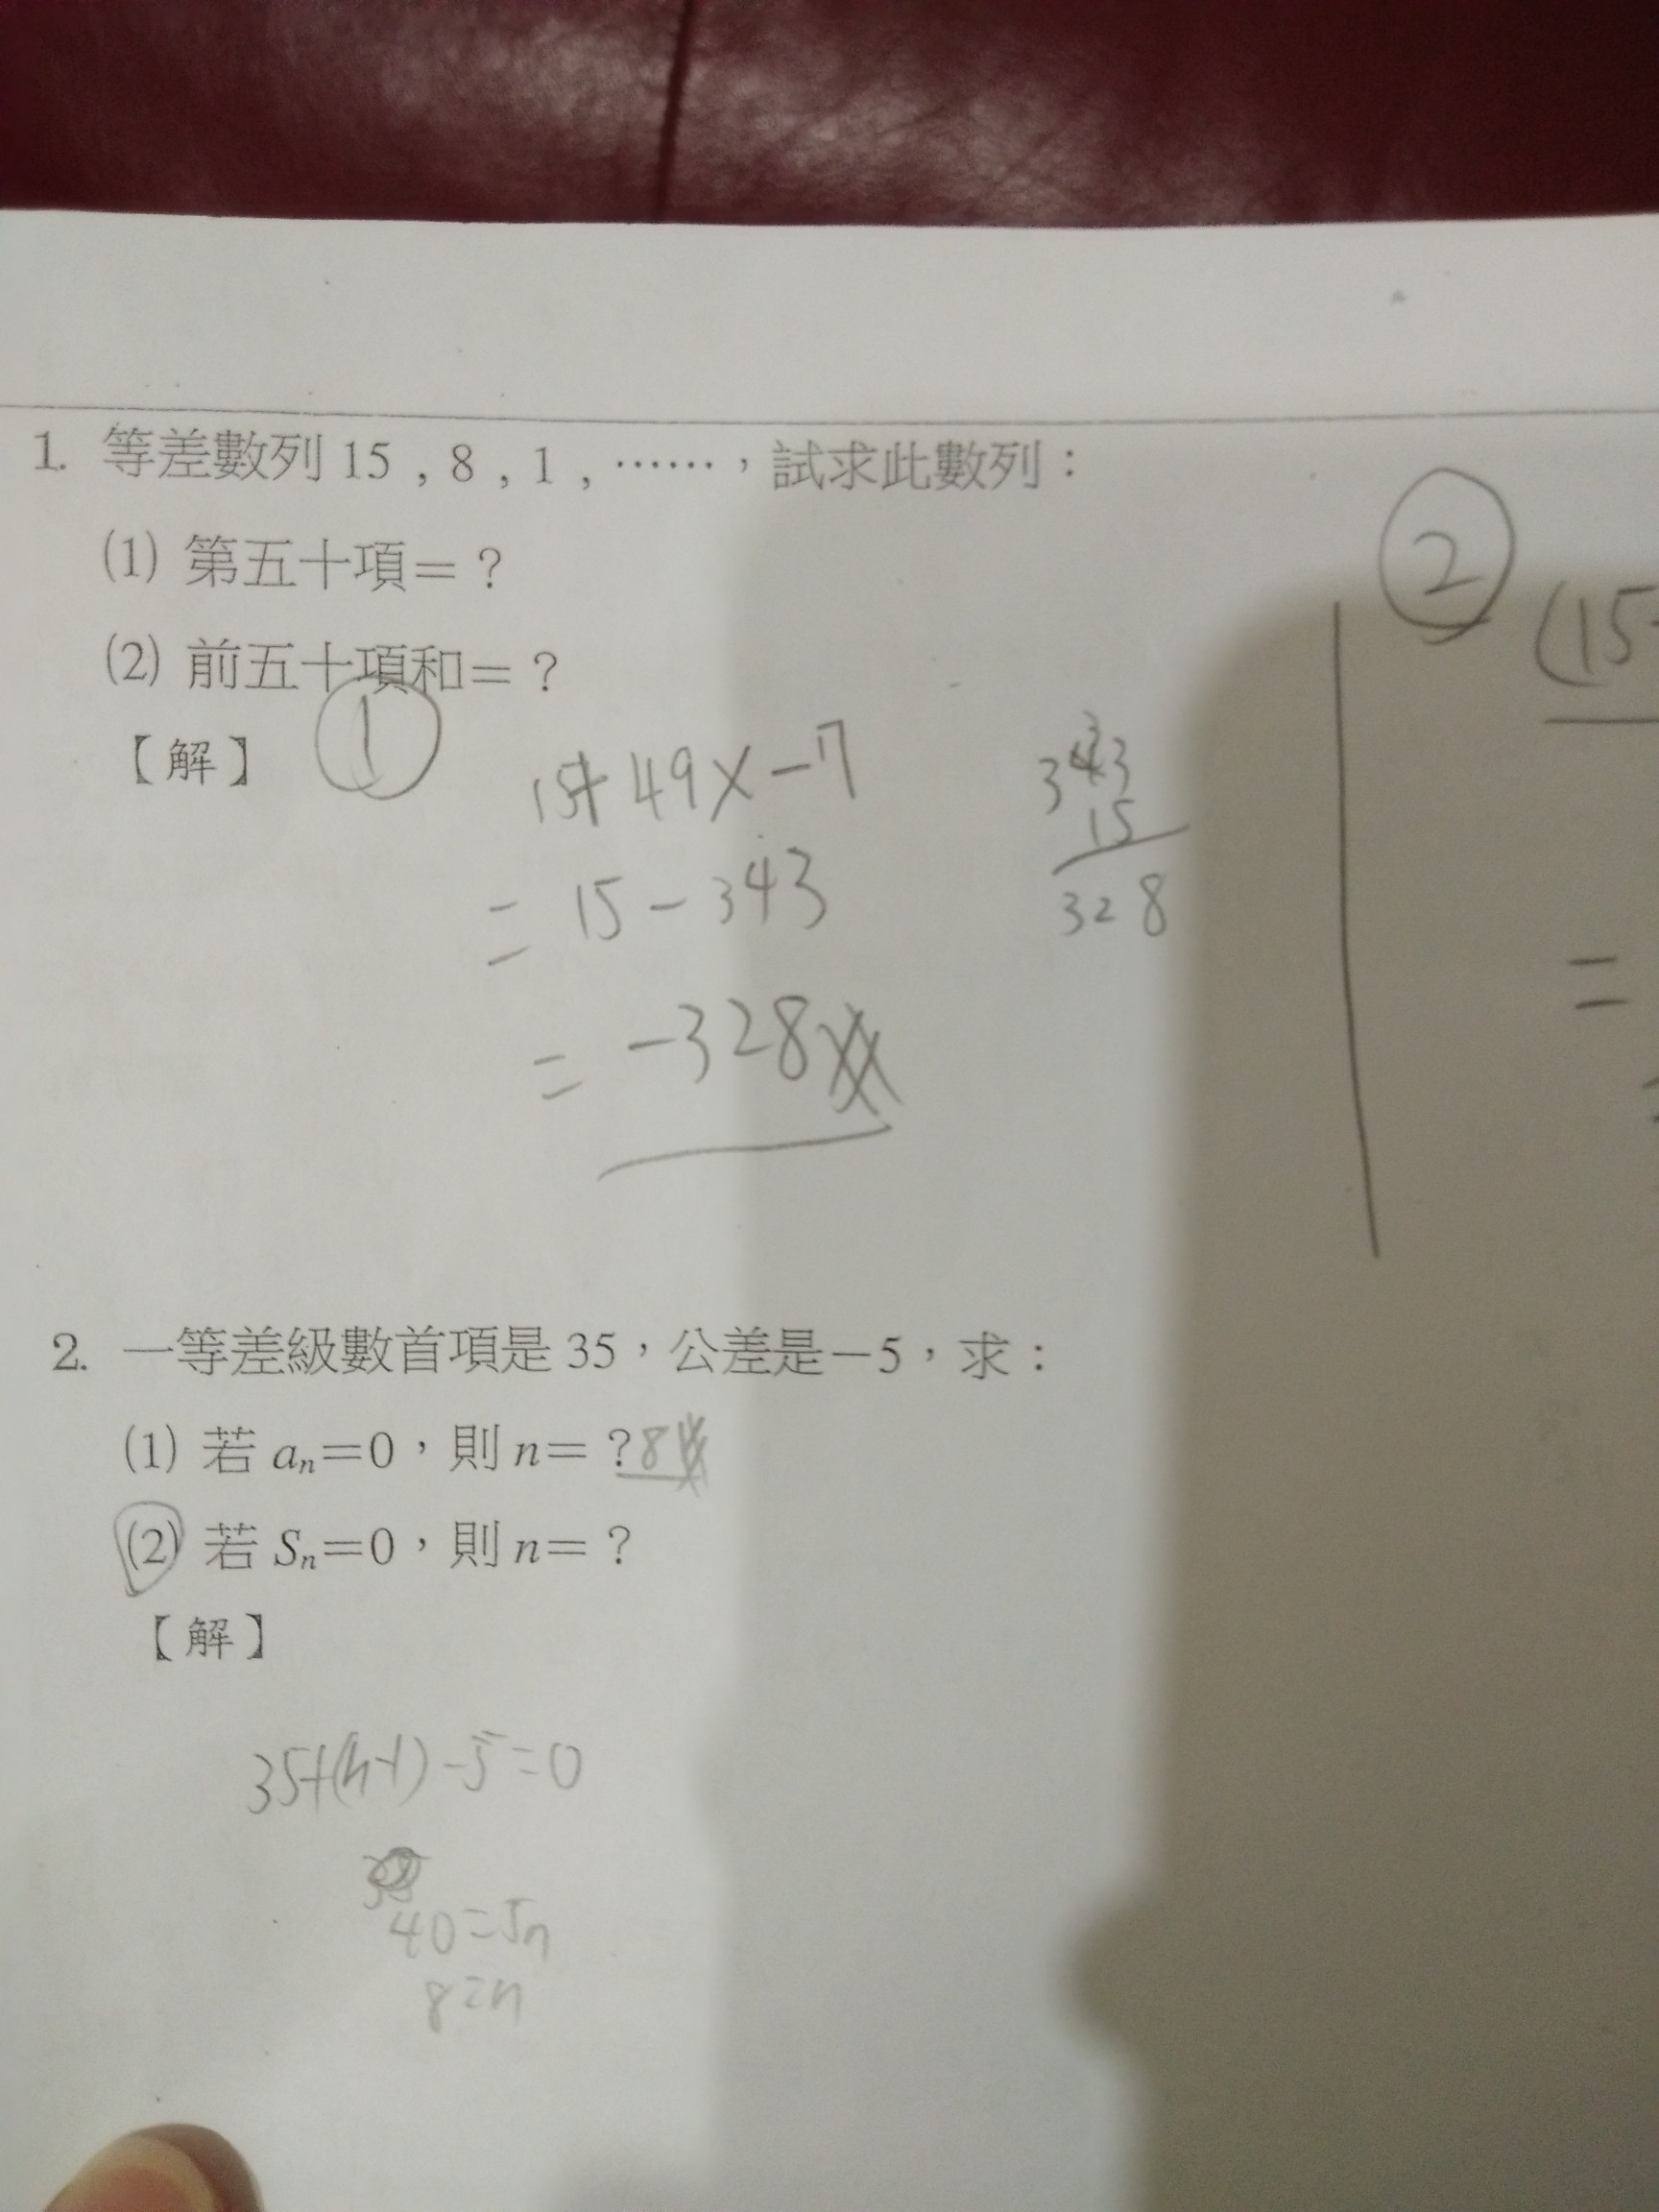 1. 等差數列 15 , 8 , 1 , ……，試求此數列：
(1) 第五十項=？
(2) 前五十項和=？
【解】
①
15+49×-7
= 15-343
= -328
343
15
328
②
(15
=
2. 一等差級數首項是 35，公差是-5，求：
(1) 若 aₙ=0，則 n=？8
(2) 若 Sₙ=0，則 n=？
【解】
35+(n-1)-5=0
40=5n
8=n